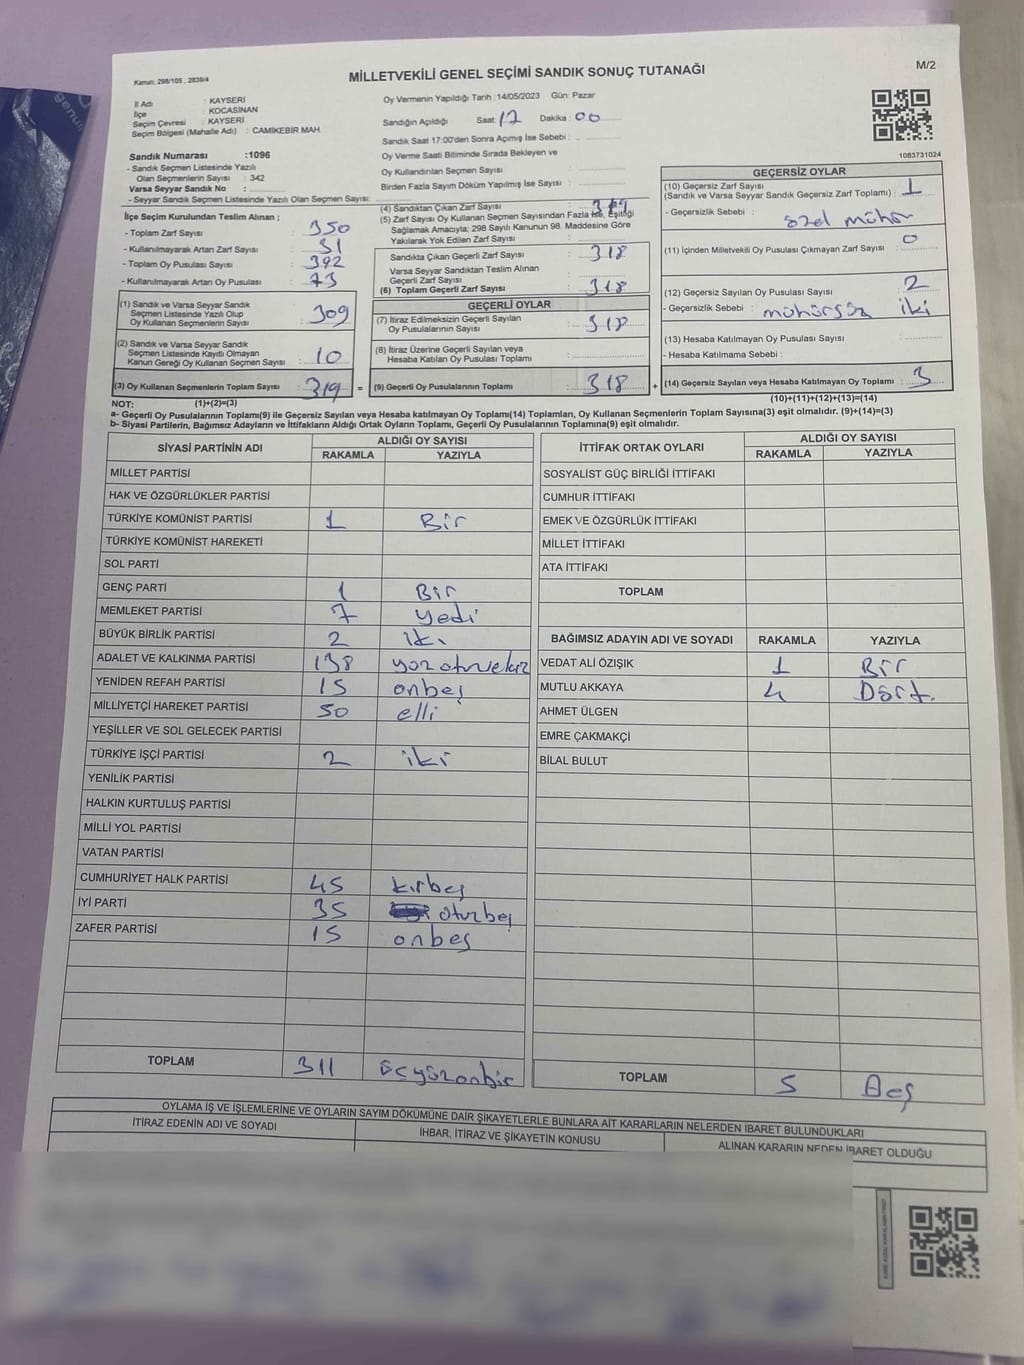 Kanun: 298/105 , 2839/4
MİLLETVEKİLİ GENEL SEÇİMİ SANDIK SONUÇ TUTANAĞI
M/2
İl Adı : KAYSERİ
İlçe : KOCASİNAN
Seçim Çevresi : KAYSERİ
Seçim Bölgesi (Mahalle Adı) : CAMİKEBİR MAH.
Sandık Numarası :1096
- Sandık Seçmen Listesinde Yazılı
Olan Seçmenlerin Sayısı : 342
Varsa Seyyar Sandık No :
- Seyyar Sandık Seçmen Listesinde Yazılı Olan Seçmen Sayısı:
Oy Vermenin Yapıldığı Tarih :14/05/2023 Gün: Pazar
Sandığın Açıldığı Saat: 17 Dakika: 00
Sandık Saat 17:00'den Sonra Açılmış İse Sebebi:
Oy Verme Saati Bitiminde Sırada Bekleyen ve
Oy Kullandırılan Seçmen Sayısı :
Birden Fazla Sayım Döküm Yapılmış İse Sayısı :
1083731024
İlçe Seçim Kurulundan Teslim Alınan ;
- Toplam Zarf Sayısı : 350
- Kullanılmayarak Artan Zarf Sayısı : 31
- Toplam Oy Pusulası Sayısı : 392
- Kullanılmayarak Artan Oy Pusulası : 73
(1) Sandık ve Varsa Seyyar Sandık
Seçmen Listesinde Yazılı Olup
Oy Kullanan Seçmenlerin Sayısı : 309
(2) Sandık ve Varsa Seyyar Sandık
Seçmen Listesinde Kayıtlı Olmayan
Kanun Gereği Oy Kullanan Seçmen Sayısı : 10
(3) Oy Kullanan Seçmenlerin Toplam Sayısı : 319 =
(4) Sandıktan Çıkan Zarf Sayısı : 319
(5) Zarf Sayısı Oy Kullanan Seçmen Sayısından Fazla İse, Eşitliği
Sağlamak Amacıyla, 298 Sayılı Kanunun 98. Maddesine Göre
Yakılarak Yok Edilen Zarf Sayısı :
Sandıkta Çıkan Geçerli Zarf Sayısı : 318
Varsa Seyyar Sandıktan Teslim Alınan
Geçerli Zarf Sayısı :
(6) Toplam Geçerli Zarf Sayısı : 318
GEÇERLİ OYLAR
(7) İtiraz Edilmeksizin Geçerli Sayılan
Oy Pusulalarının Sayısı : 318
(8) İtiraz Üzerine Geçerli Sayılan veya
Hesaba Katılan Oy Pusulası Toplamı :
(9) Geçerli Oy Pusulalarının Toplamı : 318 +
GEÇERSİZ OYLAR
(10) Geçersiz Zarf Sayısı
(Sandık ve Varsa Seyyar Sandık Geçersiz Zarf Toplamı) : 1
- Geçersizlik Sebebi : özel mühür
(11) İçinden Milletvekili Oy Pusulası Çıkmayan Zarf Sayısı : 0
(12) Geçersiz Sayılan Oy Pusulası Sayısı : 2
- Geçersizlik Sebebi : mühürsüz iki
(13) Hesaba Katılmayan Oy Pusulası Sayısı :
- Hesaba Katılmama Sebebi :
(14) Geçersiz Sayılan veya Hesaba Katılmayan Oy Toplamı : 3
NOT: (1)+(2)=(3)
(10)+(11)+(12)+(13)=(14)
a- Geçerli Oy Pusulalarının Toplamı(9) ile Geçersiz Sayılan veya Hesaba katılmayan Oy Toplamı(14) Toplamları, Oy Kullanan Seçmenlerin Toplam Sayısına(3) eşit olmalıdır. (9)+(14)=(3)
b- Siyasi Partilerin, Bağımsız Adayların ve İttifakların Aldığı Ortak Oyların Toplamı, Geçerli Oy Pusulalarının Toplamına(9) eşit olmalıdır.
SİYASİ PARTİNİN ADI ALDIĞI OY SAYISI
RAKAMLA YAZIYLA
MİLLET PARTİSİ
HAK VE ÖZGÜRLÜKLER PARTİSİ
TÜRKİYE KOMÜNİST PARTİSİ 1 Bir
TÜRKİYE KOMÜNİST HAREKETİ
SOL PARTİ
GENÇ PARTİ 1 Bir
MEMLEKET PARTİSİ 7 yedi
BÜYÜK BİRLİK PARTİSİ 2 iki
ADALET VE KALKINMA PARTİSİ 138
YENİDEN REFAH PARTİSİ 15 onbeş
MİLLİYETÇİ HAREKET PARTİSİ 50 elli
YEŞİLLER VE SOL GELECEK PARTİSİ
TÜRKİYE İŞÇİ PARTİSİ 2 iki
YENİLİK PARTİSİ
HALKIN KURTULUŞ PARTİSİ
MİLLİ YOL PARTİSİ
VATAN PARTİSİ
CUMHURİYET HALK PARTİSİ 45 kırbeş
İYİ PARTİ 35 otuzbeş
ZAFER PARTİSİ 15 onbeş
TOPLAM 311 üçyüzonbir
İTTİFAK ORTAK OYLARI ALDIĞI OY SAYISI
RAKAMLA YAZIYLA
SOSYALİST GÜÇ BİRLİĞİ İTTİFAKI
CUMHUR İTTİFAKI
EMEK VE ÖZGÜRLÜK İTTİFAKI
MİLLET İTTİFAKI
ATA İTTİFAKI
TOPLAM
BAĞIMSIZ ADAYIN ADI VE SOYADI RAKAMLA YAZIYLA
VEDAT ALİ ÖZIŞIK 1 Bir
MUTLU AKKAYA 4 Dört.
AHMET ÜLGEN
EMRE ÇAKMAKÇİ
BİLAL BULUT
TOPLAM 5 Beş
OYLAMA İŞ VE İŞLEMLERİNE VE OYLARIN SAYIM DÖKÜMÜNE DAİR ŞİKAYETLERLE BUNLARA AİT KARARLARIN NELERDEN İBARET BULUNDUKLARI
İTİRAZ EDENİN ADI VE SOYADI İHBAR, İTİRAZ VE ŞİKAYETİN KONUSU ALINAN KARARIN NEDEN İBARET OLDUĞU